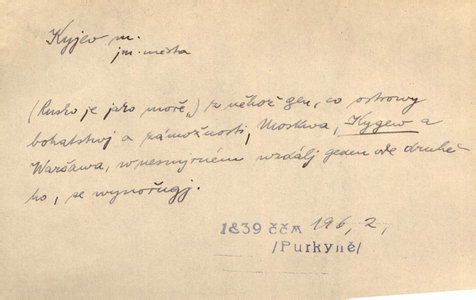 Kyjev m.
jm. města
(Rusko je jako moře,) z něhož gen, co ostrowy
bohatstwj a zámožnosti, Moskwa, Kygew a
Waršawa, w nesmjrném wzdálj geden ode druhé-
ho, se wynořugj.
1839 ččm 196, 2,
/Purkyně/